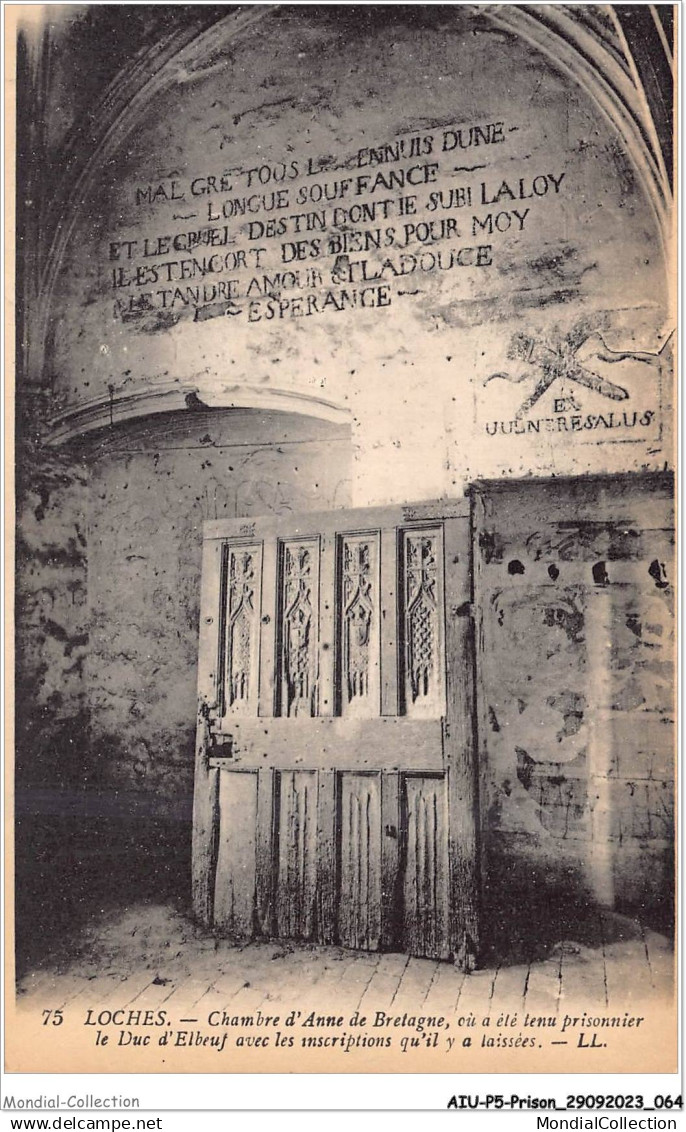 MAL GRE TOUS L ENNUIS DUNE
LONGUE SOUFFANCE
ET LE CRUEL DESTIN DONT IE SUBI LA LOY
IL EST ENCORT DES BIENS POUR MOY
LE TANDRE AMOUR ET LA DOUCE
ESPERANCE
EX
UULNERE SALUS
75 LOCHES. — Chambre d'Anne de Bretagne, où a été tenu prisonnier
le Duc d'Elbeuf avec les inscriptions qu'il y a laissées. — LL.
Mondial-Collection
AIU-P5-Prison_29092023_064
©Mondial-Collection
MondialCollection